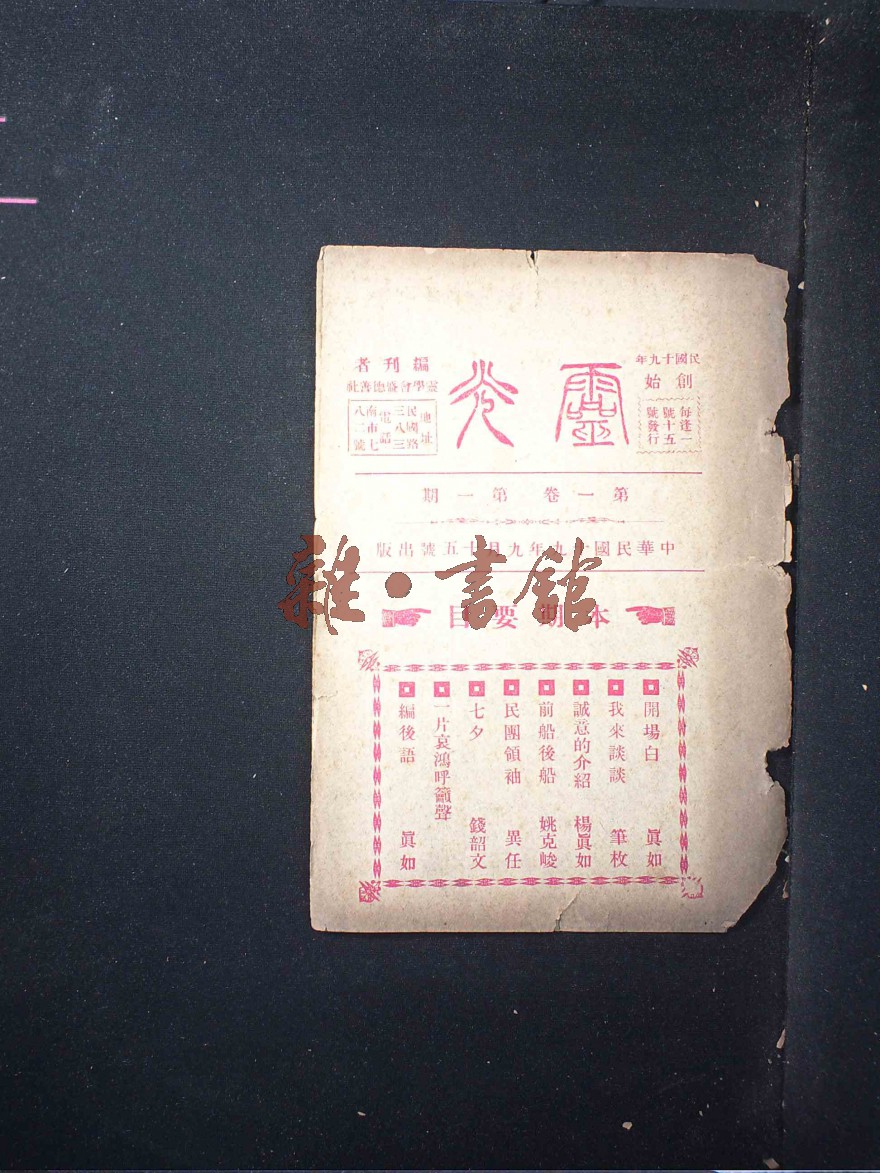 民國十九年
創始
每逢一
號十五
號發行
靈光
編刊者
靈學會盛德善社
地址
民國路
三八三
電話
南市七
八二號
第一卷 第一期
中華民國十九年九月十五號出版
本期要目
開場白 眞如
我來談談 筆枚
誠意的介紹 楊眞如
前船後船 姚克峻
民團領袖 異任
七夕 錢韶文
一片哀鴻呼籲聲
編後語 眞如
雜·書館